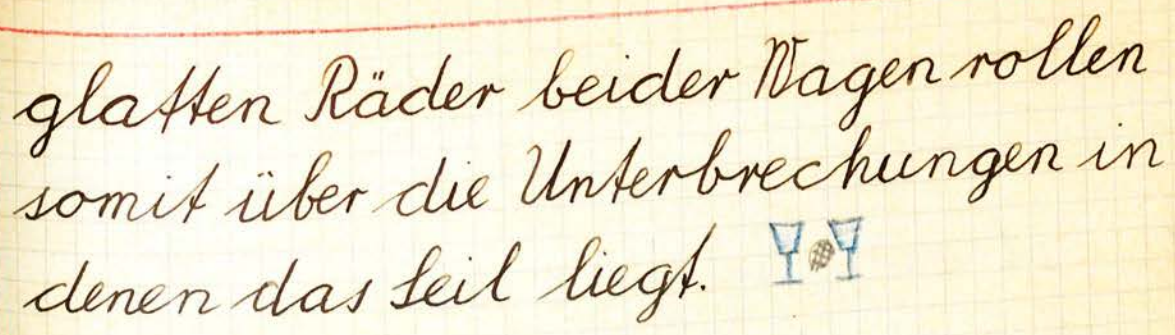 glatten Räder beider Wagen rollen
somit über die Unterbrechungen in
denen das Seil liegt.